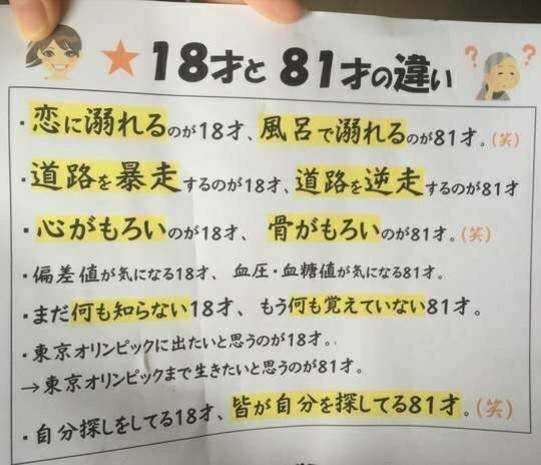 ★18才と81才の違い
? ?
・恋に溺れるのが18才、風呂で溺れるのが81才。(笑)
・道路を暴走するのが18才、道路を逆走するのが81才
・心がもろいのが18才、骨がもろいのが81才。(笑)
・偏差値が気になる18才、血圧・血糖値が気になる81才。
・まだ何も知らない18才、もう何も覚えていない81才。
・東京オリンピックに出たいと思うのが18才。
→東京オリンピックまで生きたいと思うのが81才。
・自分探しをしてる18才、皆が自分を探してる81才。(笑)